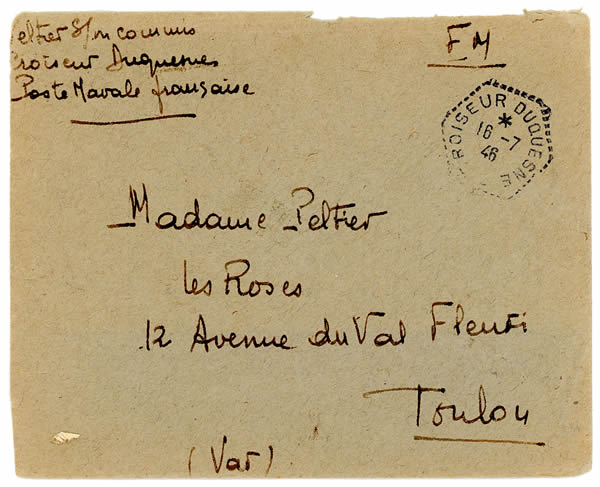 eltier S/m commis
roiseur Duquesne
Poste Navale française
FM
ROISEUR DUQUESNE
*
16 -7
46
Madame Peltier
les Roses
12 Avenue du Val Fleuri
Toulon
(Var)